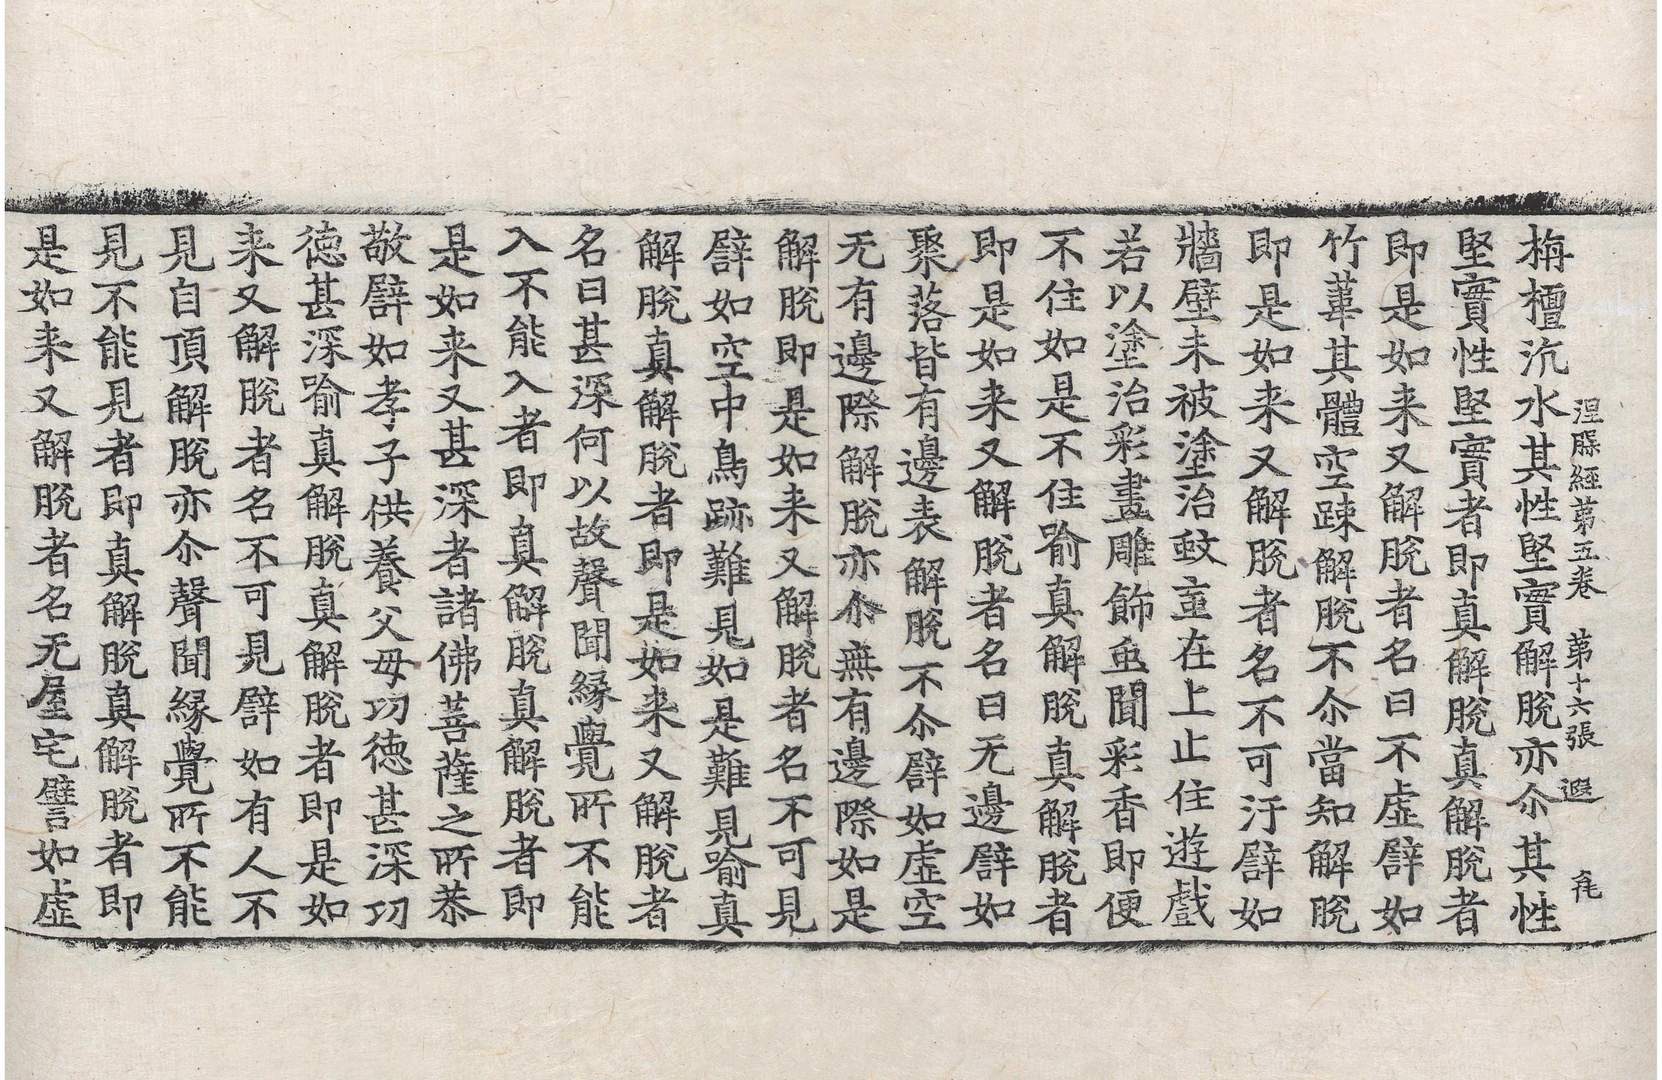 涅槃經第五卷 第十六張 遐
栴檀沉水其性堅實解脫亦尒其性
堅實性堅實者即真解脫真解脫者
即是如来又解脫者名曰不虛譬如
竹葦其體空踈解脫不尒當知解脫
即是如来又解脫者名不可汙譬如
牆壁未被塗治蚊䖝在上止住遊戲
若以塗治彩畫雕飾䖝聞彩香即便
不住如是不住喻真解脫真解脫者
即是如来又解脫者名曰无邊譬如
聚落皆有邊表解脫不尒譬如虛空
无有邊際解脫亦尒無有邊際如是
解脫即是如来又解脫者名不可見
譬如空中鳥跡難見如是難見喻真
解脫真解脫者即是如来又解脫者
名曰甚深何以故聲聞緣覺所不能
入不能入者即真解脫真解脫者即
是如来又甚深者諸佛菩薩之所恭
敬譬如孝子供養父母功德甚深功
德甚深喻真解脫真解脫者即是如
来又解脫者名不可見譬如有人不
見自頂解脫亦尒聲聞緣覺所不能
見不能見者即真解脫真解脫者即
是如来又解脫者名无屋宅譬如虛